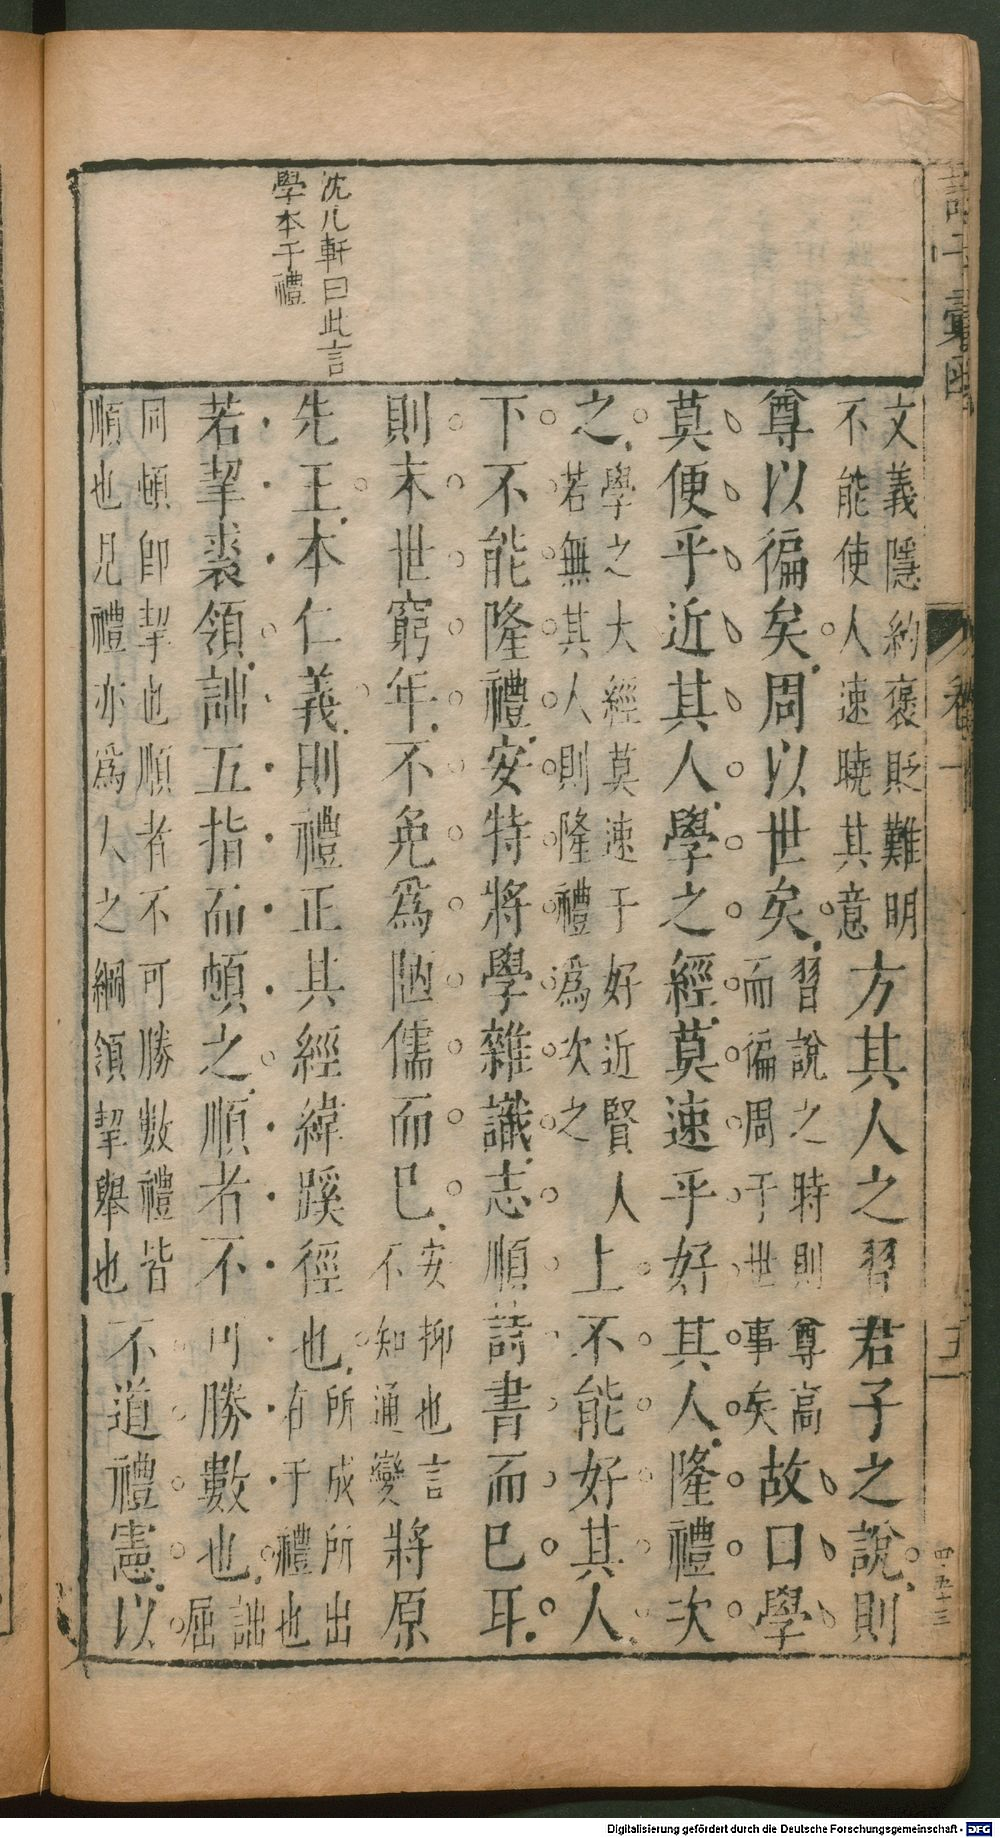 沈几軒曰此言
學本于禮
文義隱約褒貶難明
不能使人速曉其意
方其人之習君子之說則
尊以徧矣周以世矣
習說之時則尊高
而徧周于世事矣
故曰學
莫便乎近其人學之經莫速乎好其人隆禮次
之
學之大經莫速于好近賢人
若無其人則隆禮爲次之
上不能好其人
下不能隆禮安特將學雜識志順詩書而已耳
則末世窮年不免爲陋儒而已
安抑也言
不知通變
將原
先王本仁義則禮正其經緯蹊徑也
所成所出
在于禮也
若挈裘領詘五指而頓之順者不可勝數也
詘屈
同頓卽挈也順者不可勝數禮皆
順也見禮亦爲人之綱領挈舉也
不道禮憲以
諸子彙函
卷
五
四百五十三
Digitalisierung gefördert durch die Deutsche Forschungsgemeinschaft - DFG